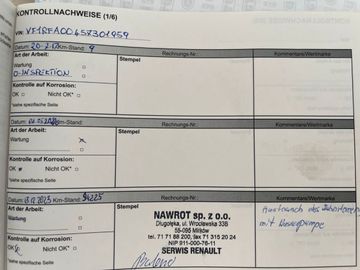 KONTROLLNACHWEISE (1/6)
VIN: VF1RFA00457301959
Datum: Km-Stand: 9 Rechnungs-Nr.: Kommentare/Wertmarke
Art der Arbeit: Stempel
Wartung
0-INSPEKTION
Kontrolle auf Korrosion:
OK Nicht OK*
*siehe spezifische Seite
Datum: Km-Stand: Rechnungs-Nr.: Kommentare/Wertmarke
Art der Arbeit: Stempel
Wartung x
Kontrolle auf Korrosion:
OK Nicht OK*
*siehe spezifische Seite
Datum: Km-Stand: Rechnungs-Nr.: Kommentare/Wertmarke
Art der Arbeit:
Wartung
Kontrolle auf Korrosion:
OK Nicht OK*
*siehe spezifische Seite
NAWROT sp. z o.o.
Długołęka, ul. Wrocławska 33B
55-095 Mirków
tel. 71 71 88 200, fax 71 315 20 24
NIP 911-000-76-11
SERWIS RENAULT
Austausch des Zahnriemen
mit Wasserpumpe